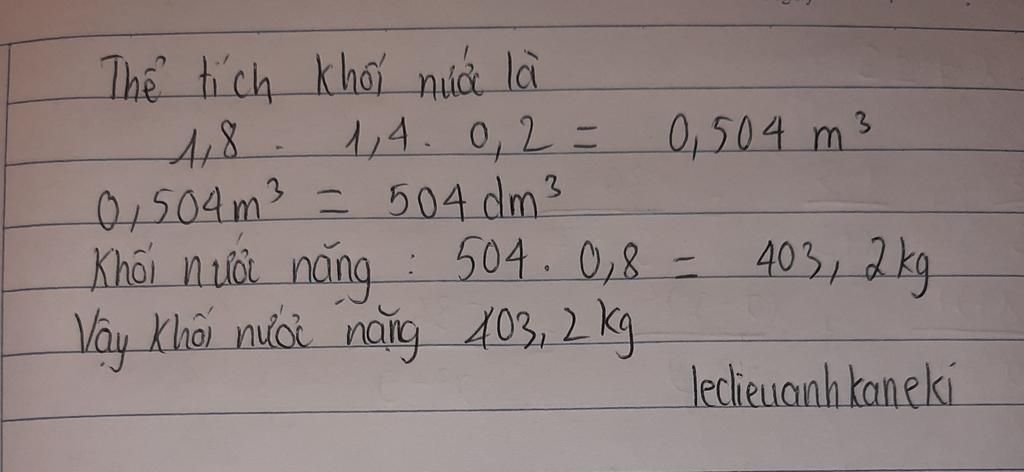 Thể tích khối nước là
1,8 . 1,4 . 0,2 = 0,504 m³
0,504m³ = 504 dm³
Khối nước nặng : 504 . 0,8 = 403,2kg
Vậy khối nước nặng 403,2kg
ledieuanhkaneki